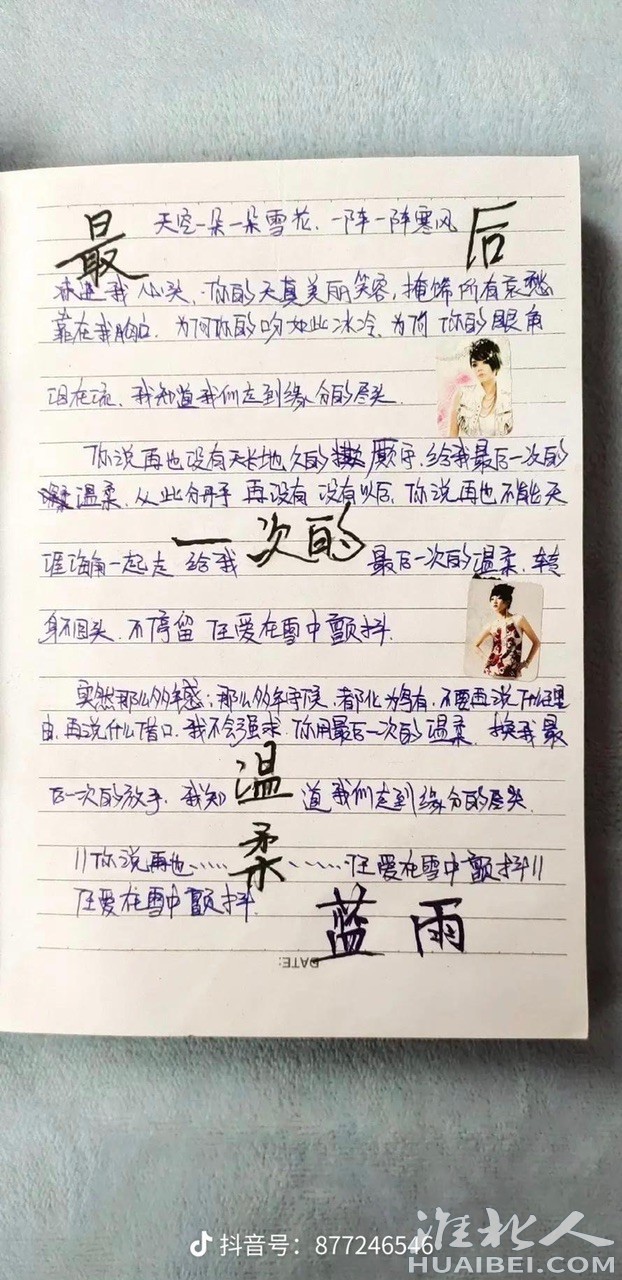 最 天空一朵一朵雪花、一阵一阵寒风 后
飘进我心头、你的天真美丽笑容，掩饰所有哀愁
靠在我胸口、为何你的吻如此冰冷、为何你的眼角
泪在流、我知道我们走到缘分的尽头
你说再也没有天长地久的厮守、给我最后一次的
温柔、从此分手 再没有 没有以后、你说再也不能天
一次的
涯海角一起走 给我 最后一次的温柔、转
身不回头、不停留 任爱在雪中颤抖
那么多年感；那么多年守候、都化为乌有、不要再说什么理
由、再说什么借口、我不会强求、你用最后一次的温柔、换我最
温
后一次的放手、我知 道我们走到缘分的尽头
柔
||你说再也…… ……任爱在雪中颤抖||
任爱在雪中颤抖
蓝雨
DATE:
抖音号：877246546
淮北人
HUAIBEI.COM